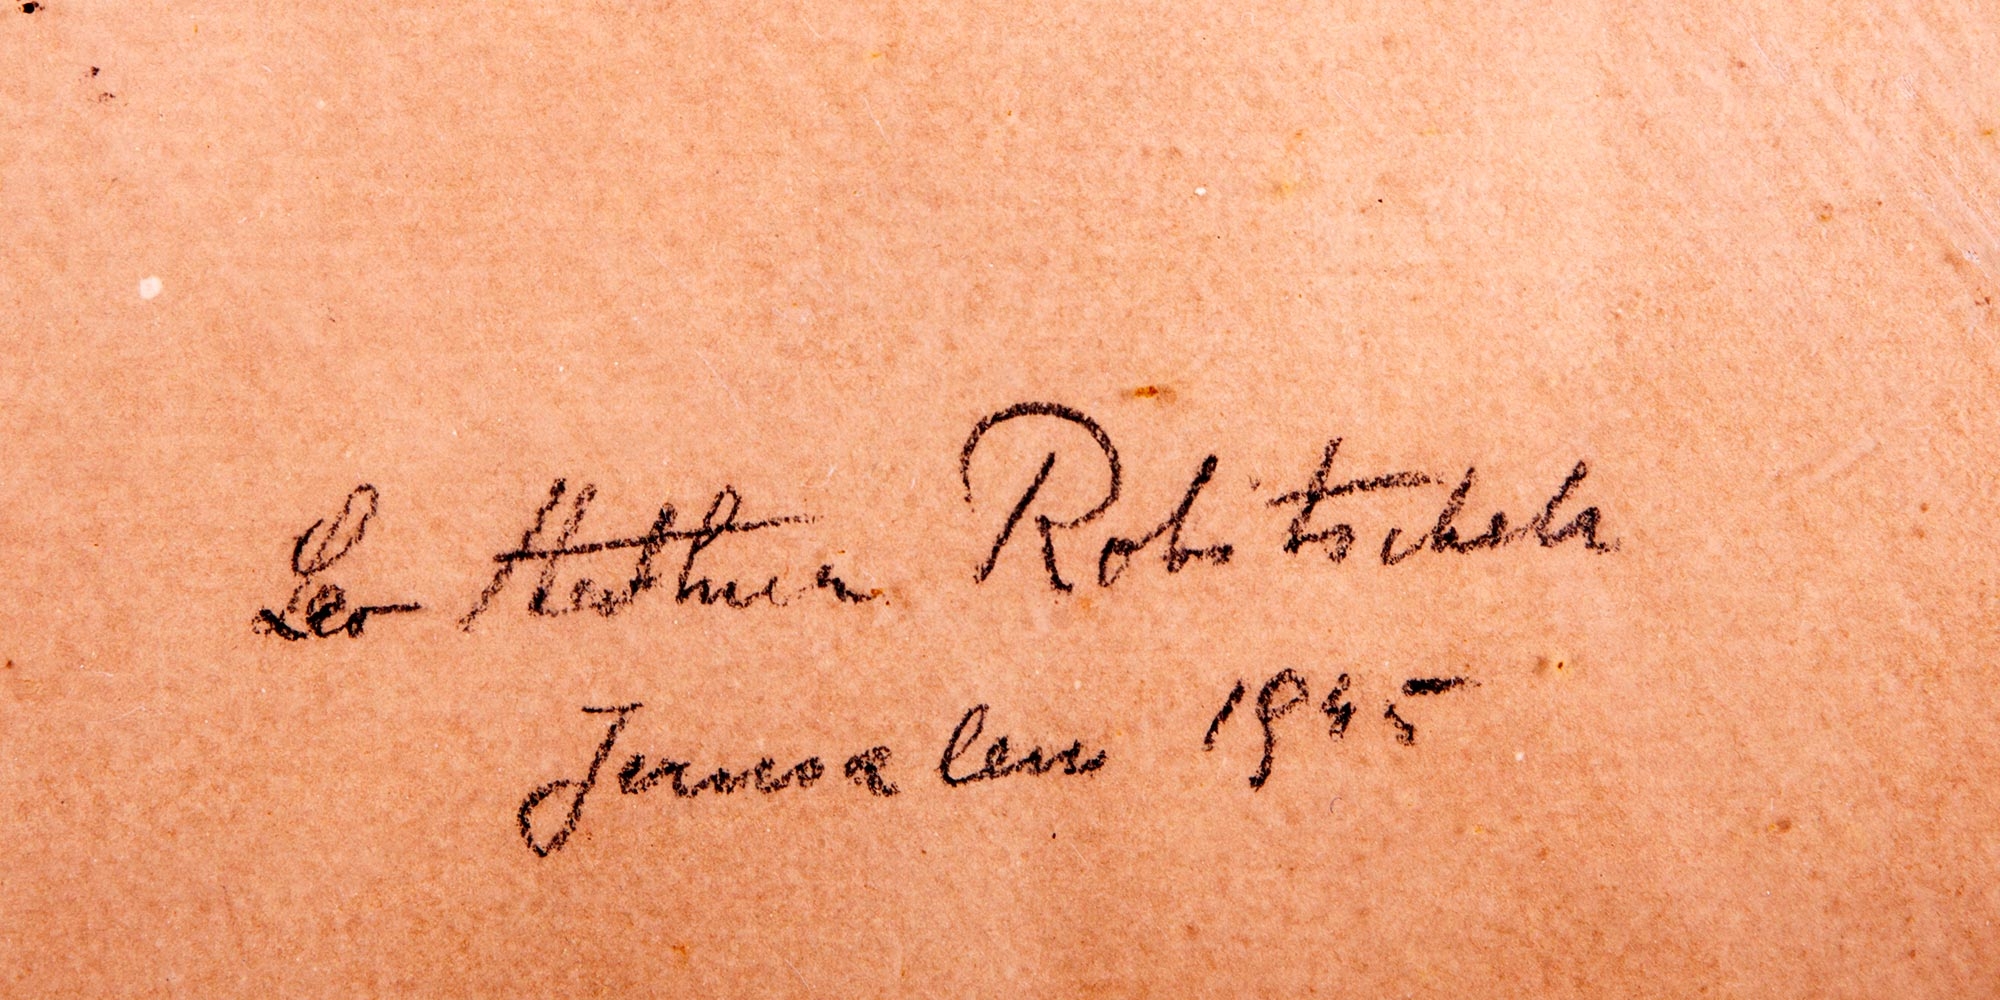 Leo Hestner Robitschek
Jerusalem 1945